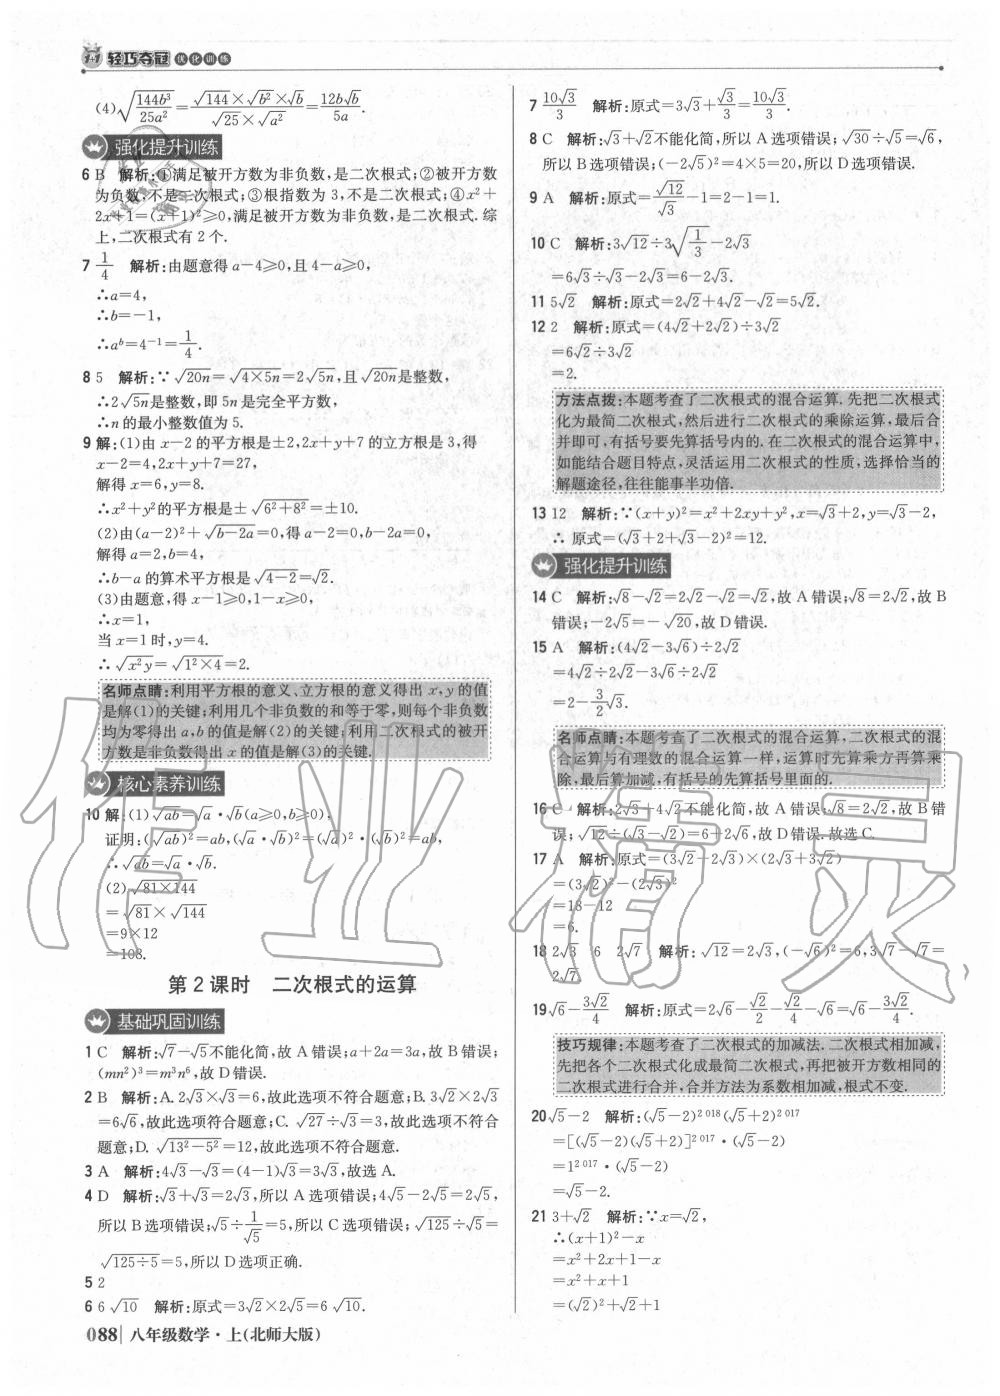 轻巧夺冠 优化训练
(4)√(144b³/25a²)=(√144×√b²×√b)/(√25×√a²)=12b√b/5a.
强化提升训练
6 B 解析:①满足被开方数为非负数,是二次根式;②被开方数
为负数,不是二次根式;③根指数为3,不是二次根式;④x²+
2x+1=(x+1)²≥0,满足被开方数为非负数,是二次根式.综
上,二次根式有2个.
7 1/4 解析:由题意得a-4≥0,且4-a≥0,
∴a=4,
∴b=-1,
∴aᵇ=4⁻¹=1/4.
8 5 解析:∵√20n=√4×5n=2√5n,且√20n是整数,
∴2√5n是整数,即5n是完全平方数,
∴n的最小整数值为5.
9 解:(1)由x-2的平方根是±2,2x+y+7的立方根是3,得
x-2=4,2x+y+7=27,
解得x=6,y=8.
∴x²+y²的平方根是±√(6²+8²)=±10.
(2)由(a-2)²+√(b-2a)=0,得a-2=0,b-2a=0,
解得a=2,b=4,
∴b-a的算术平方根是√(4-2)=√2.
(3)由题意,得x-1≥0,1-x≥0,
∴x=1,
当x=1时,y=4.
∴√(x²y)=√(1²×4)=2.
名师点睛:利用平方根的意义、立方根的意义得出x,y的值
是解(1)的关键;利用几个非负数的和等于零,则每个非负数
均为零得出a,b的值是解(2)的关键;利用二次根式的被开
方数是非负数得出x的值是解(3)的关键.
核心素养训练
10 解:(1)√ab=√a·√b(a≥0,b≥0),
证明:(√ab)²=ab,(√a·√b)²=(√a)²·(√b)²=ab,
∴√ab=√a·√b.
(2)√(81×144)
=√81×√144
=9×12
=108.
第2课时 二次根式的运算
基础巩固训练
1 C 解析:√7-√5不能化简,故A错误;a+2a=3a,故B错误;
(mn²)³=m³n⁶,故D错误.
2 B 解析:A.2√3×√3=6,故此选项不符合题意;B.3√2×2√3
=6√6,故此选项符合题意;C.√27÷√3=3,故此选项不符合
题意;D.√(13²-5²)=12,故此选项不符合题意.
3 A 解析:4√3-√3=(4-1)√3=3√3,故选A.
4 D 解析:√3+√3=2√3,所以A选项错误;4√5-2√5=2√5,
所以B选项错误;√5÷1/√5=5,所以C选项错误;√125÷√5=
√(125÷5)=5,所以D选项正确.
5 2
6 6√10 解析:原式=3√2×2√5=6√10.
088 八年级数学·上(北师大版)
7 10√3/3 解析:原式=3√3+√3/3=10√3/3.
8 C 解析:√3+√2不能化简,所以A选项错误;√30÷√5=√6,
所以B选项错误;(-2√5)²=4×5=20,所以D选项错误.
9 A 解析:原式=√12/√3-1=2-1=1.
10 C 解析:3√12÷3√(1/3)-2√3
=6√3÷√3-2√3=6-2√3.
11 5√2 解析:原式=2√2+4√2-√2=5√2.
12 2 解析:原式=(4√2+2√2)÷3√2
=6√2÷3√2
=2.
方法点拨:本题考查了二次根式的混合运算.先把二次根式
化为最简二次根式,然后进行二次根式的乘除运算,最后合
并即可,有括号要先算括号内的.在二次根式的混合运算中,
如能结合题目特点,灵活运用二次根式的性质,选择恰当的
解题途径,往往能事半功倍.
13 12 解析:∵(x+y)²=x²+2xy+y²,x=√3+2,y=√3-2,
∴原式=(√3+2+√3-2)²=12.
强化提升训练
14 C 解析:√8-√2=2√2-√2=√2,故A错误;√8=2√2,故B
错误;-2√5=-√20,故D错误.
15 A 解析:(4√2-3√6)÷2√2
=4√2÷2√2-3√6÷2√2
=2-3/2√3.
名师点睛:本题考查了二次根式的混合运算,二次根式的混
合运算与有理数的混合运算一样,运算时先算乘方再算乘
除,最后算加减,有括号的先算括号里面的.
16 C 解析:2√3+4√2不能化简,故A错误;√8=2√2,故B错
误;√12÷(√3-√2)=6+2√6,故D错误.故选C.
17 A 解析:原式=(3√2-2√3)×(2√3+3√2)
=(3√2)²-(2√3)²
=18-12
=6.
18 2√3 6 2√7 解析:√12=2√3,(-√6)²=6,3√7-√7=
2√7
19 √6-3√2/4 解析:原式=2√6-√2/2-√2/4-√6=√6-3√2/4.
技巧规律:本题考查了二次根式的加减法.二次根式相加减,
先把各个二次根式化成最简二次根式,再把被开方数相同的
二次根式进行合并,合并方法为系数相加减,根式不变.
20 √5-2 解析:(√5-2)²⁰¹⁸(√5+2)²⁰¹⁷
=[(√5-2)(√5+2)]²⁰¹⁷·(√5-2)
=1²⁰¹⁷·(√5-2)
=√5-2.
21 3+√2 解析:∵x=√2,
∴(x+1)²-x
=x²+2x+1-x
=x²+x+1
=(√2)²+√2+1
作业精灵